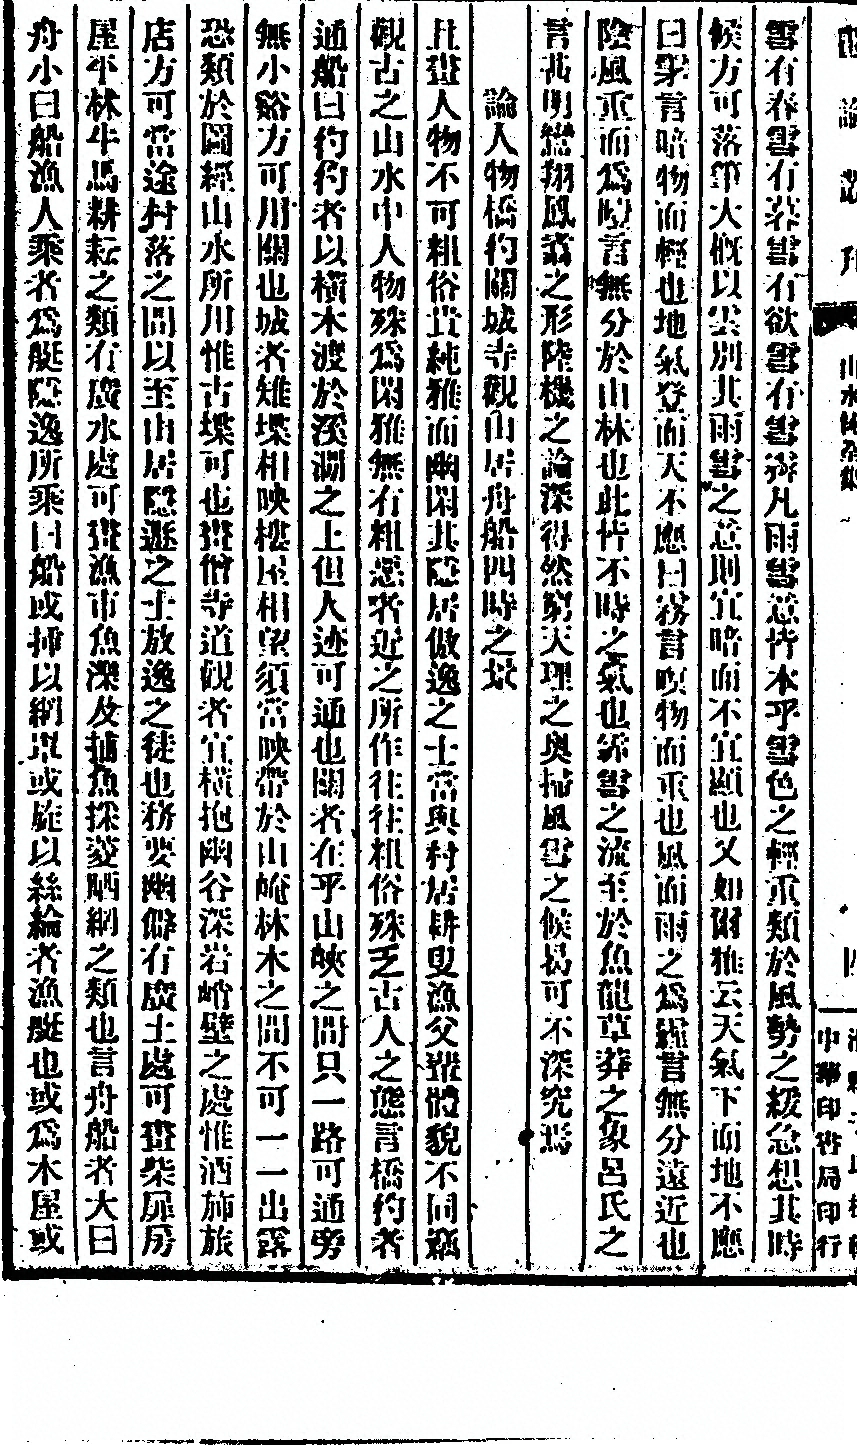 畫論叢刊
山水純全集
中華印書局印行
雪有春雪有暮雪有欲雪有雪霽凡雨雪意皆本乎雪色之輕重類於風勢之緩急想其時
候方可落筆大概以雲別其雨雪之意則宜暗而不宜顯也又如爾雅云天氣下而地不應
曰雺言暗物而輕也地氣發而天不應曰霧言暝物而重也風而雨之爲霾言無分遠近也
陰風重而爲曀言無分於山林也此皆不時之氣也霏雪之流至於魚龍草莽之象呂氏之
言甚明鸞翔鳳翥之形陸機之論深得然窮天理之奧掃風雪之候曷可不深究焉
論人物橋彴關城寺觀山居舟船四時之景
且畫人物不可粗俗貴純雅而幽閑其隱居傲逸之士當與村居耕叟漁父輩體貌不同竊
觀古之山水中人物殊爲閑雅無有粗惡者近之所作往往粗俗殊乏古人之態言橋彴者
通船曰彴彴者以橫木渡於溪澗之上但人迹可通也關者在乎山峽之間只一路可通旁
無小谿方可用關也城者雉堞相映樓屋相望須當映帶於山崦林木之間不可一一出露
恐類於圖經山水所用惟古堞可也畫僧寺道觀者宜橫抱幽谷深岩峭壁之處惟酒斾旅
店方可當途村落之間以至山居隱遯之士放逸之徒也務要幽僻有廣土處可畫柴扉房
屋平林牛馬耕耘之類有廣水處可畫漁市魚濼及捕魚採菱晒網之類也言舟船者大曰
舟小曰船漁人乘者爲艇隱逸所乘曰船或插以網罩或旋以絲綸者漁艇也或爲木屋或